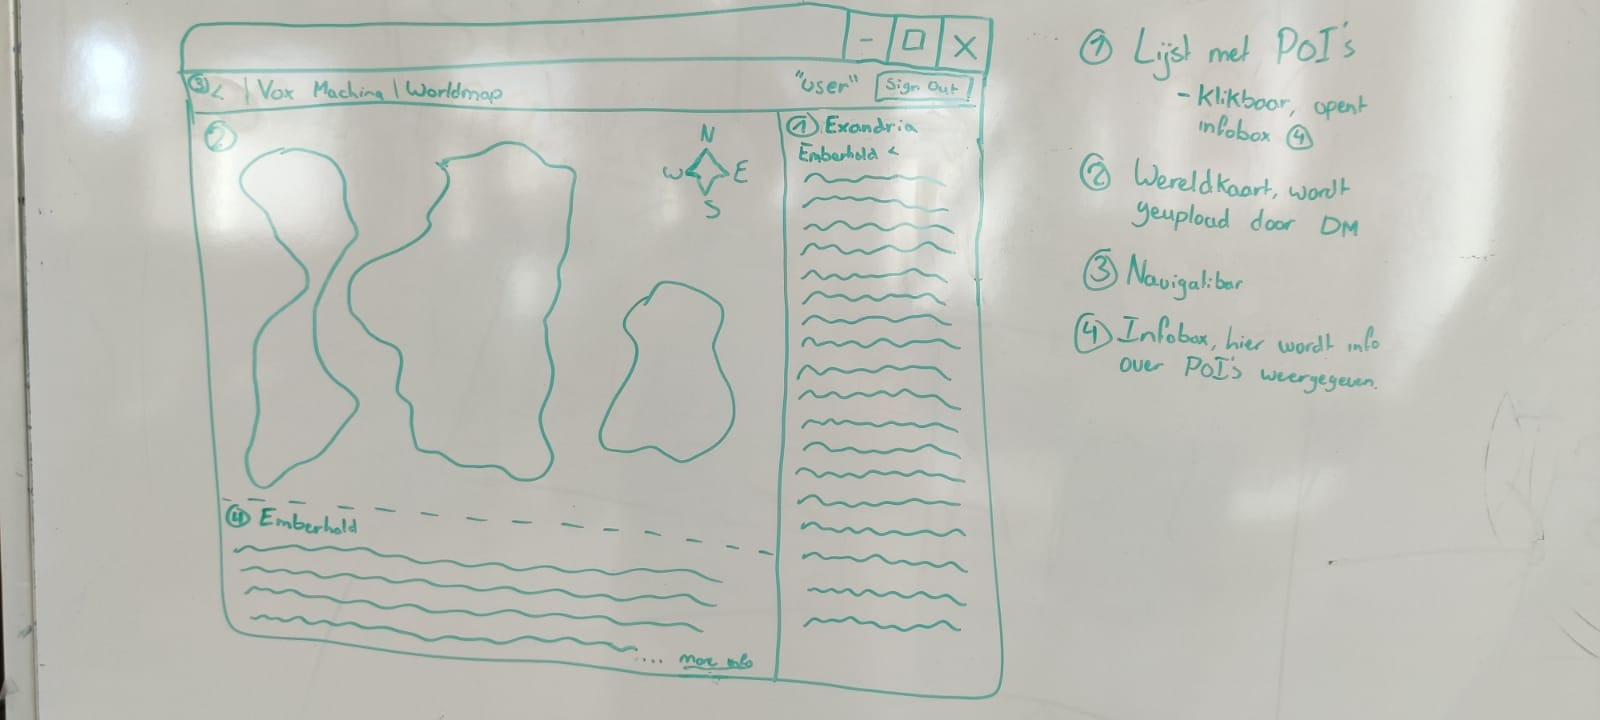 - □ X
③ < | Vox Machina | Worldmap
"User" Sign Out
②
N
W E
S
① Exandria
Emberhold <
④ Emberhold
.... more info
① Lijst met PoI's
- Klikbaar, opent
infobox ④
② Wereldkaart, wordt
geupload door DM
③ Navigatiebar
④ Infobox, hier wordt info
over PoI's weergegeven.